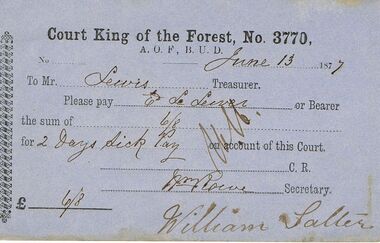 Court King of the Forest, No. 3770,
A. O. F., B. U. D.
No June 13 1877
To Mr. Lewis Treasurer.
Please pay or Bearer
the sum of 6/8
for 2 Days Sick Pay on account of this Court.
C. R.
Wm Rowe Secretary.
£ 6/8
William Salter